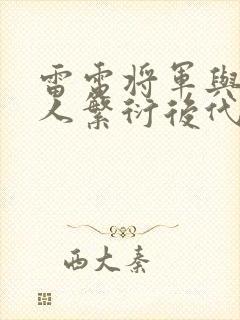 雷雷將軍與
人繁衍後代
西大秦